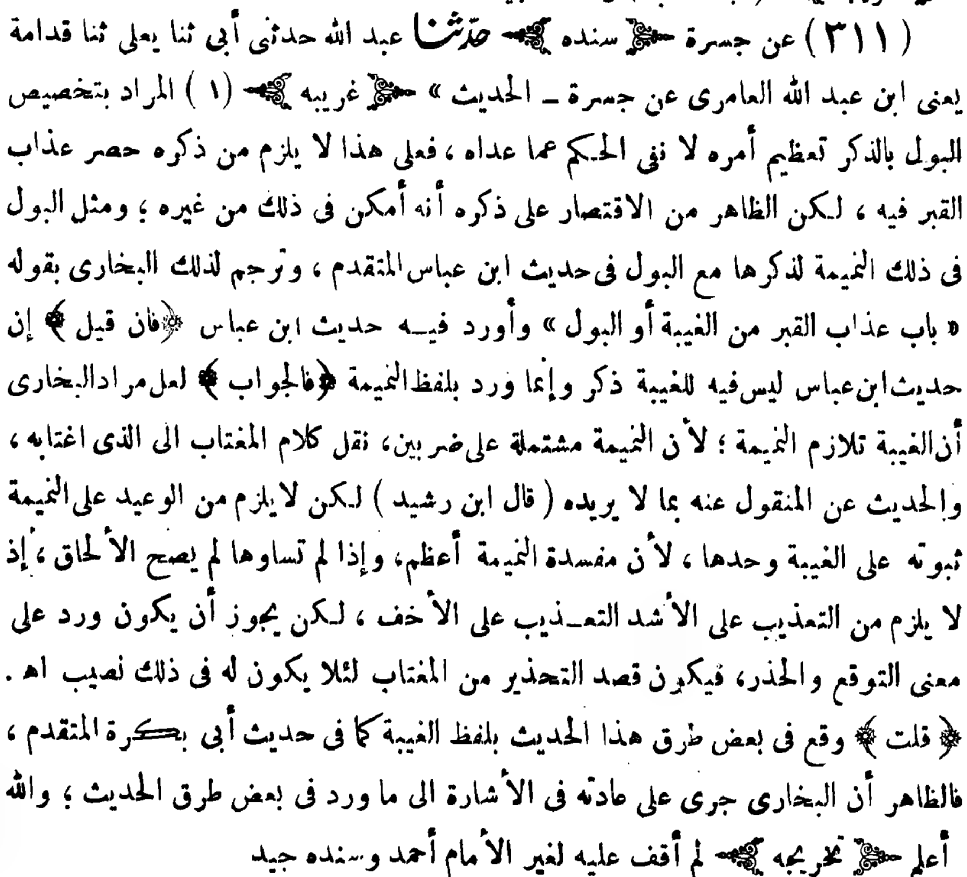 (٣١١) عن جسرة ﴿ سنده ﴾ حدثنا عبد الله حدثنى أبى ثنا يعلى ثنا قدامة
يعنى ابن عبد الله العامرى عن جسرة ــ الحديث » ﴿ غريبه ﴾ (١) المراد بتخصيص
البول بالذكر تعظيم أمره لا نفى الحكم عما عداه ، فعلى هذا لا يلزم من ذكره حصر عذاب
القبر فيه ، لكن الظاهر من الاقتصار على ذكره أنه أمكن فى ذلك من غيره ؛ ومثل البول
فى ذلك النميمة لذكرها مع البول فى حديث ابن عباس المتقدم ، وترجم لذلك البخارى بقوله
« باب عذاب القبر من الغيبة أو البول » وأورد فيه حديث ابن عباس ﴿فان قيل ﴾ إن
حديث ابن عباس ليس فيه للغيبة ذكر وإنما ورد بلفظ النميمة ﴿فالجواب ﴾ لعل مراد البخارى
أن الغيبة تلازم النميمة ؛ لأن النميمة مشتملة على ضربين، نقل كلام المغتاب الى الذى اغتابه ،
والحديث عن المنقول عنه بما لا يريده ( قال ابن رشيد ) لكن لا يلزم من الوعيد على النميمة
ثبوته على الغيبة وحدها ، لأن مفسدة النميمة أعظم، وإذا لم تساوها لم يصح الألحاق ، إذ
لا يلزم من التعذيب على الأشد التعذيب على الأخف ، لكن يجوز أن يكون ورد على
معنى التوقع والحذر، فيكون قصد التحذير من المغتاب لئلا يكون له فى ذلك نصيب اهـ .
﴿ قلت ﴾ وقع فى بعض طرق هذا الحديث بلفظ الغيبة كما فى حديث أبى بكرة المتقدم ،
فالظاهر أن البخارى جرى على عادته فى الأشارة الى ما ورد فى بعض طرق الحديث ؛ والله
أعلم ﴿ تخريجه ﴾ لم أقف عليه لغير الأمام أحمد وسنده جيد